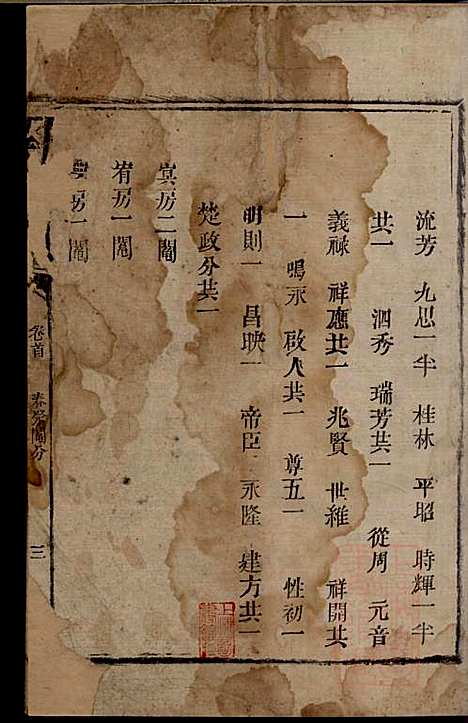 流芳 九思一半 桂林 平昭 時輝一半
共一 泗秀 瑞芳共一 從周 元音
義祿 祥應共一 兆賢 世維 祥開共
一 鳴永 啟人共一 尊五一 性初一
明則一 昌映一 帝臣 永隆 建方共一
楚政分共一
寘房二鬮
宥房一鬮
房一鬮
卷首 鬮分 三